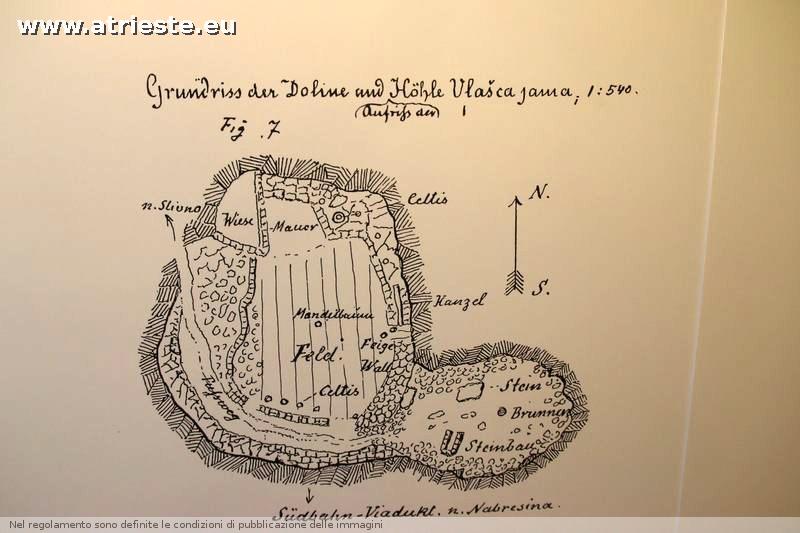 www.atrieste.eu
Grundriss der Doline und Höhle Vlašca jama, 1:540.
(Aufriss der)
Fig. 7
n. Slivno
Wiese
Mauer
Celtis
N.
S.
Kanzel
Mandelbaum
Feld.
Feige
Wall
Celtis
Fussweg
Stein
Brunnen
Steinbau
Südbahn-Viadukt. n. Nabresina.
Nel regolamento sono definite le condizioni di pubblicazione delle immagini